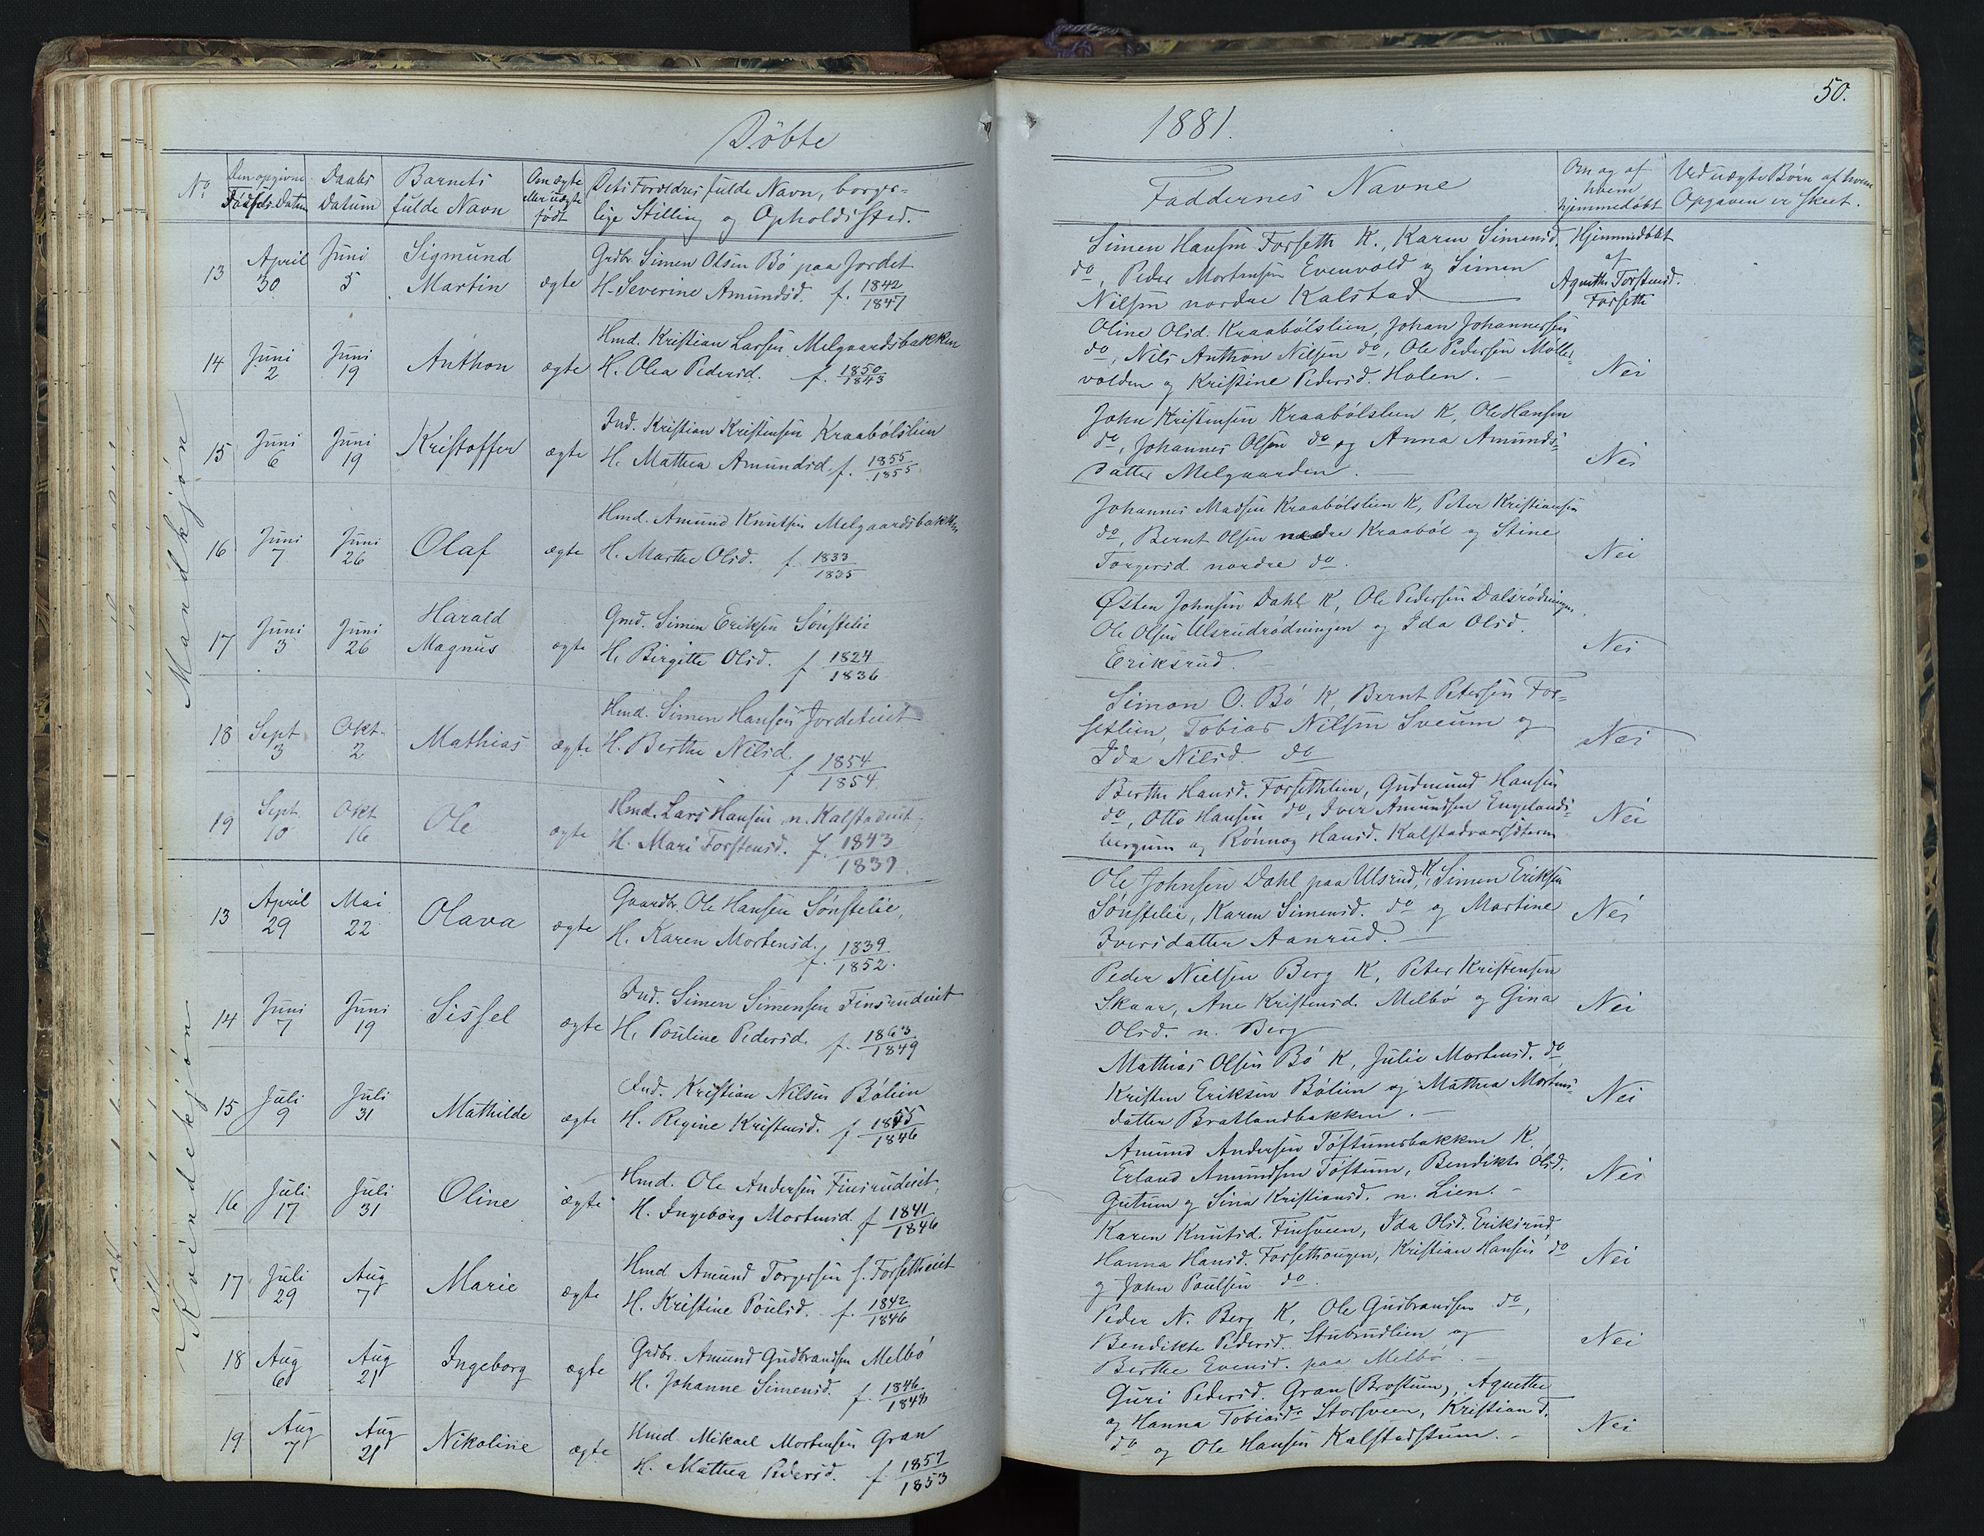 Døbte
No
Den opgivne Fødsels-Datum
Daabs Datum
Barnets fulde Navn
Om ægte eller uægte født
Dets Forældres fulde Navn, borgerlige Stilling og Opholdssted.
Mandkjøn
13 April 30 Juni 5 Sigmund Martin ægte
Grdbr Simen Olsen Bø paa Jordet
H. Severine Amundsd. f. 1842/1847
14 Juni 2 Juni 19 Anthon ægte
Hmd. Kristian Larsen Melgaardsbakken
H. Olea Pedersd. f. 1850/1843
15 Juni 6 Juni 19 Kristoffer ægte
Ind. Kristian Kristensen Kraabølslien
H. Mathea Amundsd. f. 1855/1855
16 Juni 7 Juni 26 Olaf ægte
Hmd. Amund Knutsen Melgaardsbakken
H. Marthe Olsd. f. 1833/1835
17 Juni 3 Juni 26 Harald Magnus ægte
Gmd. Simen Eriksen Sønstelie
H. Birgitte Olsd. f 1824/1836
18 Sept 3 Okt. 2 Mathias ægte
Hmd. Simen Hansen Jordeteiet
H. Berthe Nilsd. f 1854/1854
19 Sept 10 Okt 16 Ole ægte
Hmd. Lars Hansen n. Kalstadeiet
H. Mari Torstensd. f. 1843/1839.
Kvindekjøn
13 April 29 Mai 22 Olava ægte
Gaardbr. Ole Hansen Sønstelie,
H. Karen Mortensd. f. 1839/1852.
14 Juni 7 Juni 19 Sissel ægte
Ind. Simen Simensen Finsrudeiet
H. Pouline Pedersd. f. 1863/1849
15 Juli 9 Juli 31 Mathilde ægte
Ind. Kristian Nilsen Bølien
H. Regine Kristensd. f 1855/1846
16 Juli 17 Juli 31 Oline ægte
Hmd. Ole Andersen Finsrudeiet,
H. Ingeborg Mortensd. f 1841/1846
17 Juli 29 Aug 7 Marie ægte
Hmd. Amund Torgersen s. Forsetheiet
H. Kristine Poulsd. f. 1842/1846
18 Aug 6 Aug 21 Ingeborg ægte
Grdbr. Amund Gudbrandsen Melbø
H. Johanne Simensd. f 1846/1848
19 Aug 7 Aug 21 Nikoline ægte
Hmd. Mikael Mortensen Gran
H. Mathea Pedersd. f 1857/1853
1881.
50.
Faddernes Navne
Om og af hvem hjemmedøbt
Ved uægte Børn af hvem Opgaven er skeet.
Simen Hansen Forseth K., Karen Simensd.
do, Peder Mortensen Evenvold og Simen
Nilsen nordre Kalstad
Hjemmedøbt af Agnethe Torstensd. Forseth
Oline Olsd. Kraabølslien, Johan Johannessen
do, Nils Anthon Nilsen do, Ole Pedersen Møller
volden og Kristine Pedersd. Holen.
Nei
John Kristensen Kraabølslien K, Ole Hansen
do, Johannes Olsen do og Anna Amunds-
datter Melgaarden.
Nei
Johannes Madsen Kraabølslien K, Peter Kristiansen
do, Bernt Olsen nordre Kraabøl og Stine
Torgersd nordre do.
Nei
Østen Johnsen Dahl K, Ole Pedersen Dalsrødningen
Ole Olsen Ulsrudrødningen og Ida Olsd.
Eriksrud.
Nei
Simon O. Bø K, Bernt Petersen For-
setlien, Tobias Nilsen Sveum og
Ida Nilsd. do
Nei
Berthe Hansd. Forsethlien, Gudmund Hansen
do, Otto Hansen do, Iver Amundsen Engelands-
bergum og Rønnog Hansd. Kalstadvaarsæteren
Nei
Ole Johnsen Dahl paa Ulsrud, K, Simen Eriksen
Sønstelie, Karen Simensd. do og Martine
Iversdatter Aanrud.
Nei
Peder Nielsen Berg K, Peter Kristensen
Skaar, Ane Kristensd. Melbø og Gina
Olsd. n. Berg
Nei
Mathias Olsen Bø K, Julie Mortensd. do
Kristen Eriksen Bølien og Mathea Mortens-
datter Bratlandbakken.
Nei
Amund Andersen Tøftumsbakken K
Erland Amundsen Tøftum, Bendikte Olsd.
Gutum og Sina Kristiansd. n. Lien.
Nei
Karen Knutsd. Finsveen, Ida Olsd. Eriksrud
Hanna Hansd. Forsethougen, Kristian Hansen do
og John Poulsen do.
Nei
Peder N. Berg K, Ole Gudbrandsen do,
Bendikte Pedersd. Stubrudlien og
Berthe Evensd. paa Melbø.
Nei
Guri Pedersd. Gran (Brostuen), Agnethe
og Hanna Tobiasdr Storsveen, Kristian d.
do og Ole Hansen Kalstadstuen.
Nei